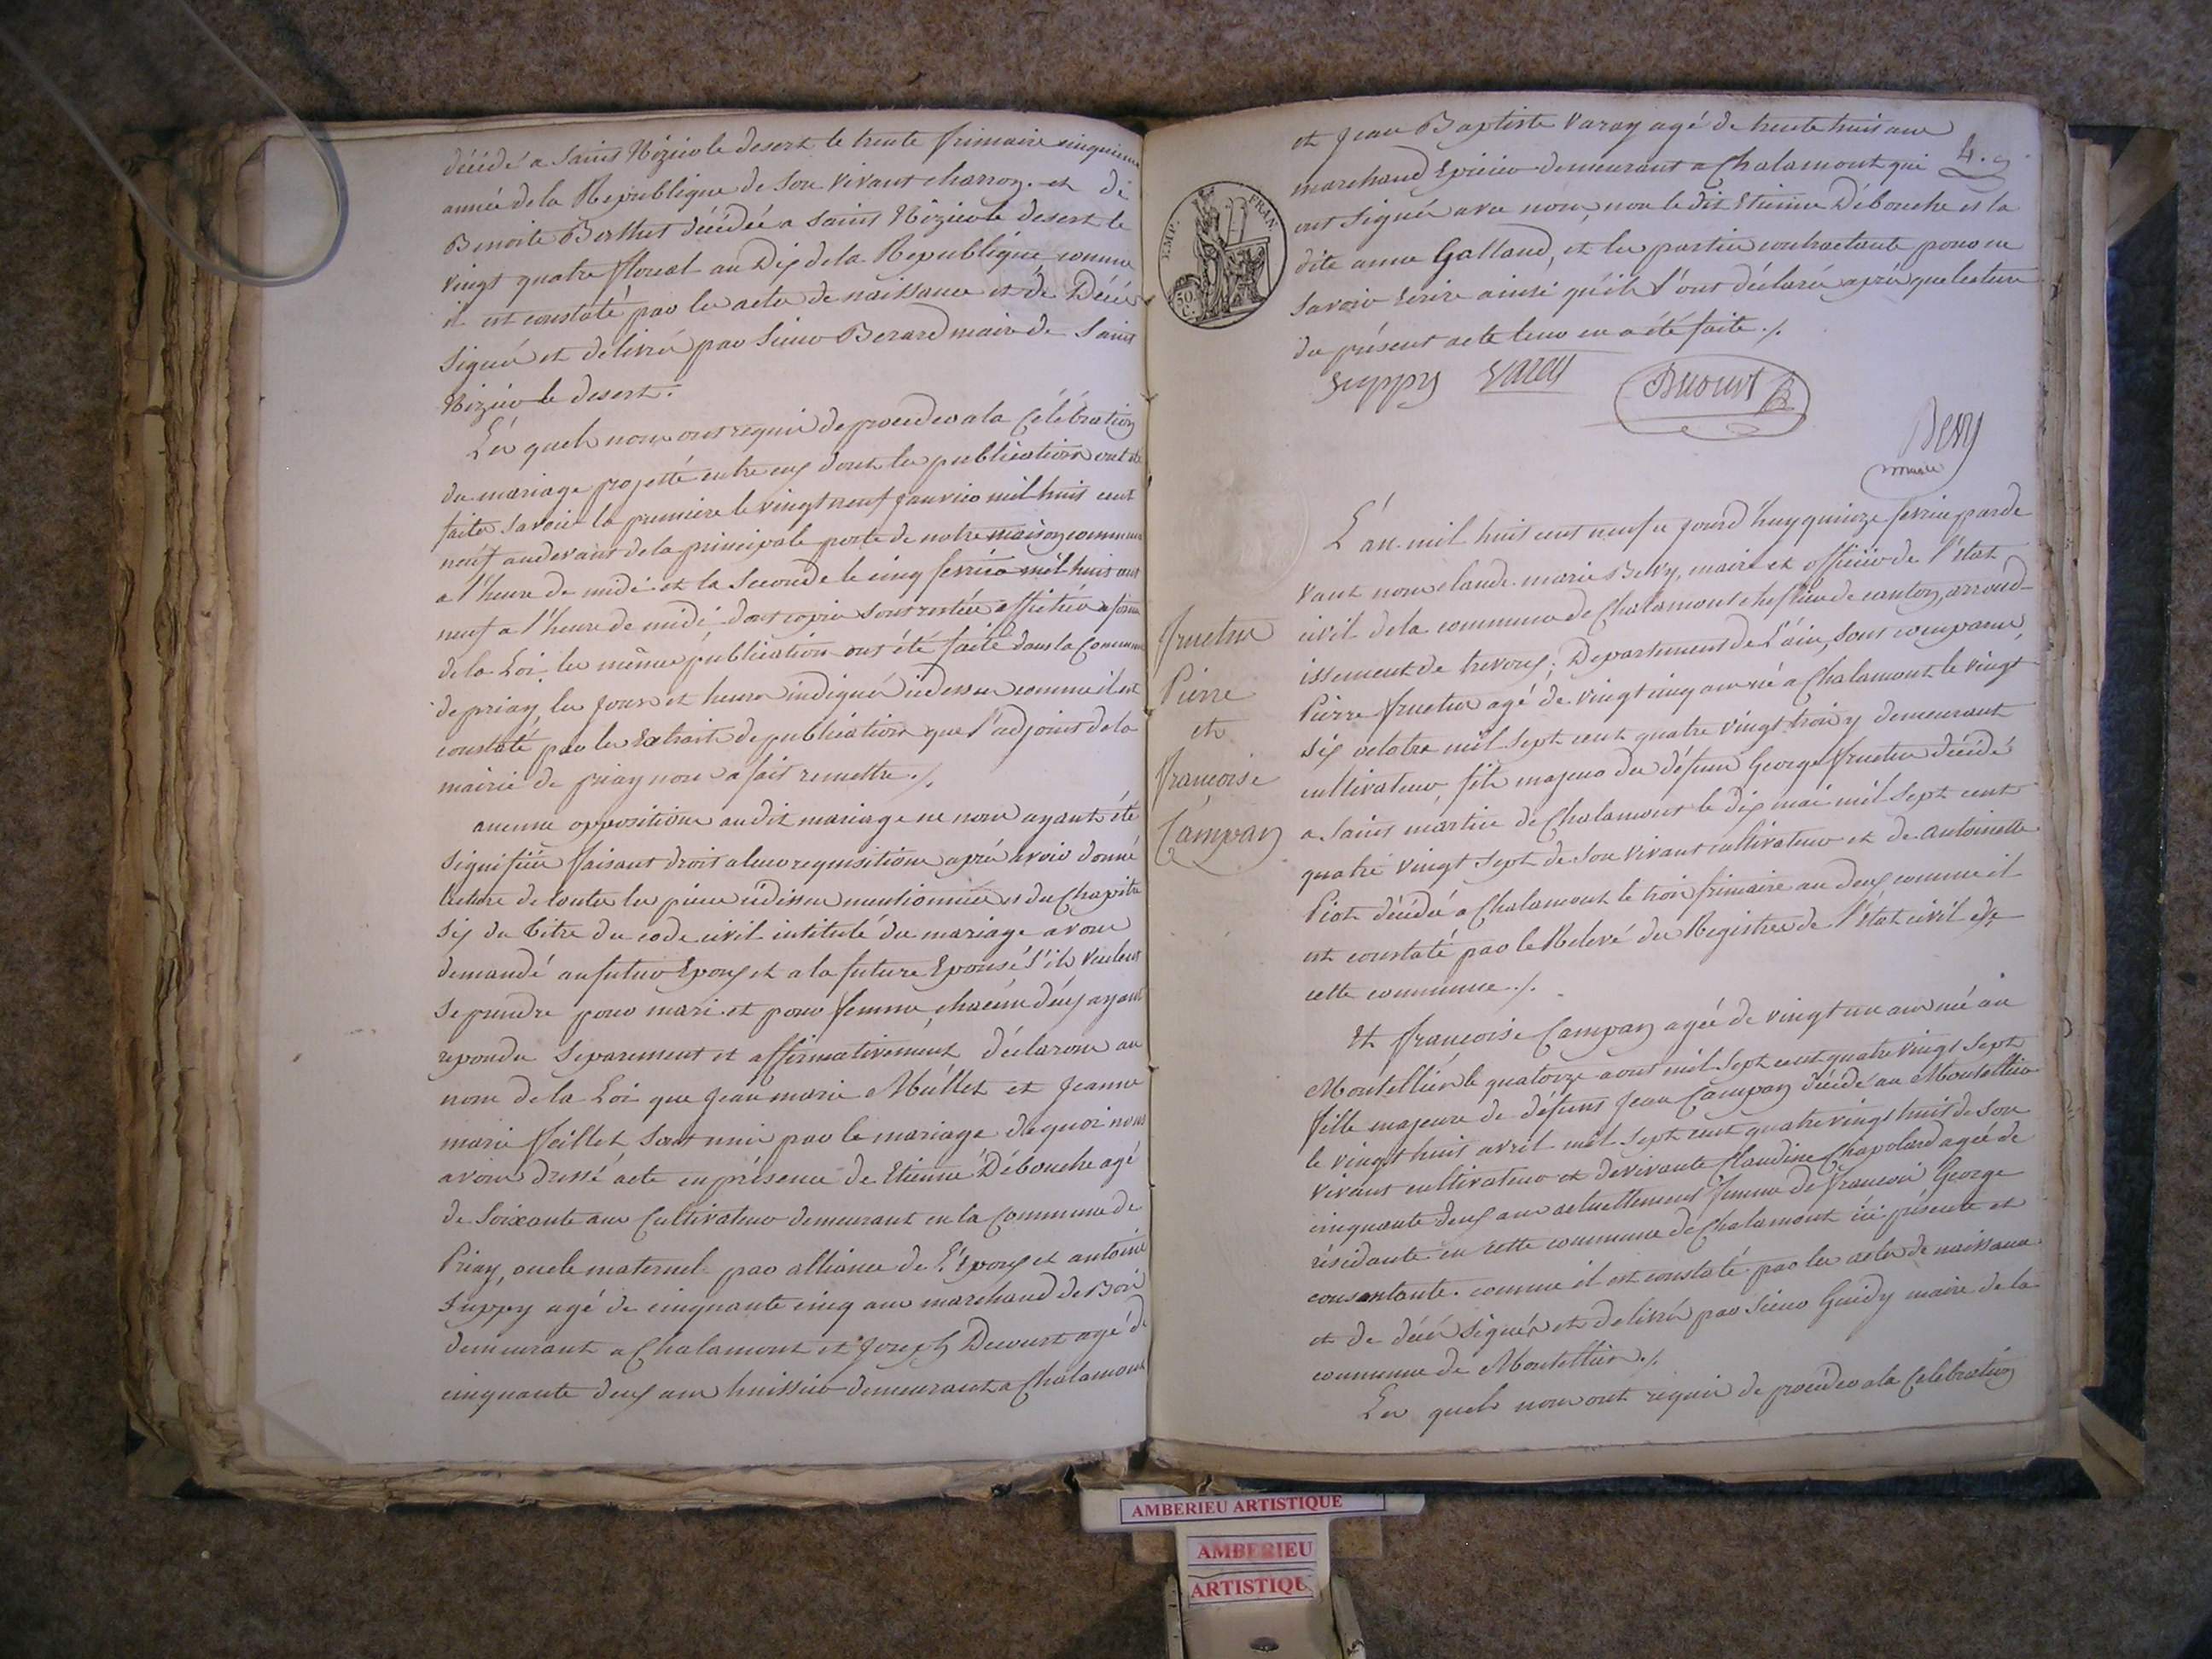 décédé a Saint Nizier le desert le trente frimaire cinquieme
année de la Republique de son vivant charron. et de
Benoite Berthet décédée a Saint Nizier le desert le
vingt quatre floreal an Dix de la Republique comme
il est constaté par les actes de naissance et de Décés
signés et delivrés par Sieur Berard maire de Saint
Nizier le desert.
Les quels nous ont requis de proceder a la Célébration
du mariage projetté entre eux dont les publications ont été
faites savoir la premiere le vingt neuf janvier mil huit cent
neuf au devant de la principale porte de notre maison commune
a l'heure de midi et la seconde le cinq fevrier mil huit cent
neuf a l'heure de midi dont copies sont restées affichées a forme
de la Loi. les mêmes publications ont été faite dans la Commune
de priay les jours et heures indiqués cidessus comme il est
constaté par les Extraits de publications que l'adjoint de la
mairie de priay nous a fait remettre ./.
aucune opposition audit mariage ne nous ayant été
signifiée faisant droit a leur requisition après avoir donné
lecture de toutes les pieces cidessus mentionnées et du Chapitre
six du titre du code civil intitulé du mariage avons
demandé au futur Epoux et a la future Epouse s'ils veulent
se prendre pour mari et pour femme, chacun d'eux ayant
repondu separement et affirmativement déclarons au
nom de la Loi que Jean marie Mullet et Jeanne
marie feillet sont unis par le mariage de quoi nous
avons dressé acte en présence de Etienne Débouche agé
de Soixante ans Cultivateur demeurant en la Commune de
Priay, oncle maternel par alliance de L'Epoux et antoine
Suppy agé de cinquante cinq ans marchand de Bois
demeurant a Chalamont et Joseph Ducurt agé de
cinquante deux ans huissier demeurant a Chalamont
et Jean Baptiste Varay agé de trente huit ans
marchand Epicier demeurant a Chalamont qui
4.
ont signés avec nous, non le dit Etienne Débouche et la
dite anne Galland, et les parties contractantes pour ne
savoir Ecrire ainsi qu'ils l'ont déclaré après que lecture
du présent acte leur en a été faite ./.
EMP. FRAN.
50 C.
Suppy Varay
maire
L'an mil huit cent neuf ce jourd'huy quinze fevrier parde
vant nous claude marie Belly, maire et officier de l'état
civil de la commune de Chalamont chef lieu de canton, arrond-
issement de trevoux, Departement de L'ain, sont comparus,
Pierre fruetur agé de vingt cinq ans né a Chalamont le vingt
six octobre mil sept cent quatre vingt trois y demeurant
cultivateur, fils majeur du défunt George fruetur décédé
a saint martin de Chalamont le dix mai mil sept cent
quatre vingt sept de son vivant cultivateur et de antoinette
Piot décédée a Chalamont le trois frimaire an deux comme il
est constaté par le Relevé des Registres de l'état civil de
cette commune ./.
Pierre
et
françoise
Campan
Et françoise Campan agée de vingt un ans née au
Montellier le quatorze aout mil sept cent quatre vingt sept
fille majeure de défunt Jean Campan décédé au Montellier
le vingt huit avril mil sept cent quatre vingt huit de son
vivant cultivateur et de vivante Claudine Chapolard agée de
cinquante deux ans actuellement femme de françois George
résidante en cette commune de Chalamont ici présente et
consentante. comme il est constaté par les actes de naissance
et de décés signés et delivrés par Sieur Guidy maire de la
commune de Montellier ./.
Les quels nous ont requis de proceder a la Celebration
AMBERIEU ARTISTIQUE
AMBERIEU
ARTISTIQU